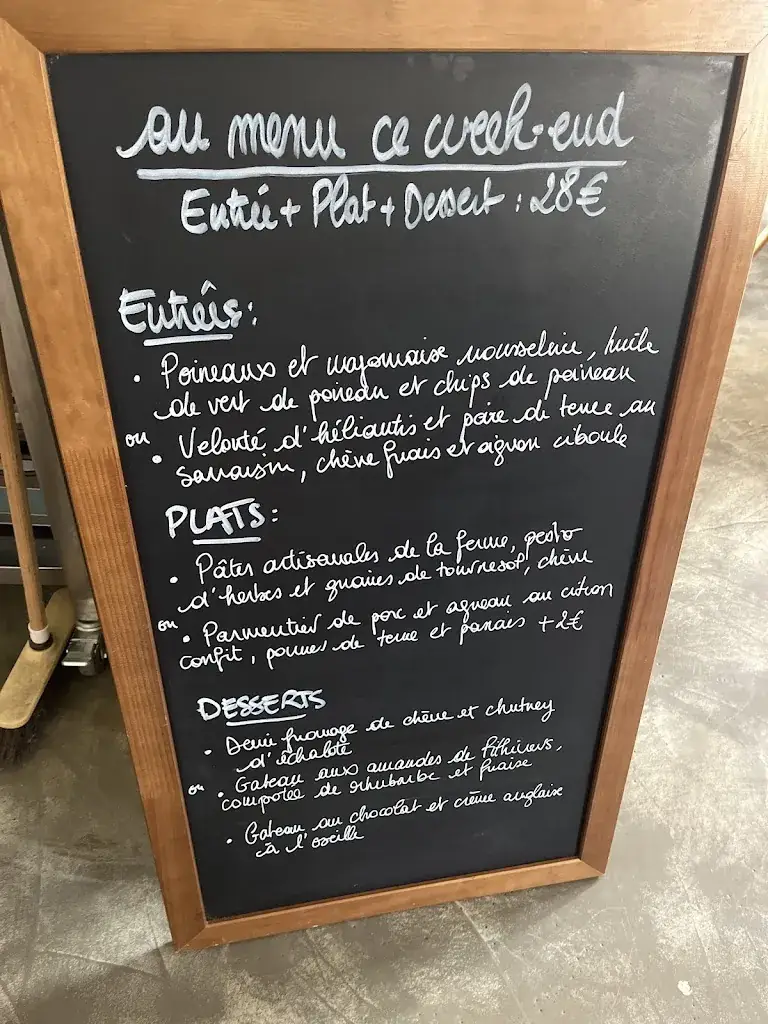 au menu ce week-end
Entrée + Plat + Dessert : 28€
Entrées :
• Poireaux et mayonnaise mousseline, huile
de vert de poireau et chips de poireau
ou
• Velouté d'héliantis et poire de terre au
sarrasin, chèvre frais et oignon ciboule
PLATS :
• Pâtes artisanales de la ferme, pesto
d'herbes et graines de tournesol, chèvre
ou
• Parmentier de porc et agneau au citron
confit, pommes de terre et panais +2€
DESSERTS
• Demi fromage de chèvre et chutney
d'échalote
ou
• Gateau aux amandes de
compotée de rhubarbe et fraise
• Gateau au chocolat et crème anglaise
à l'oseille